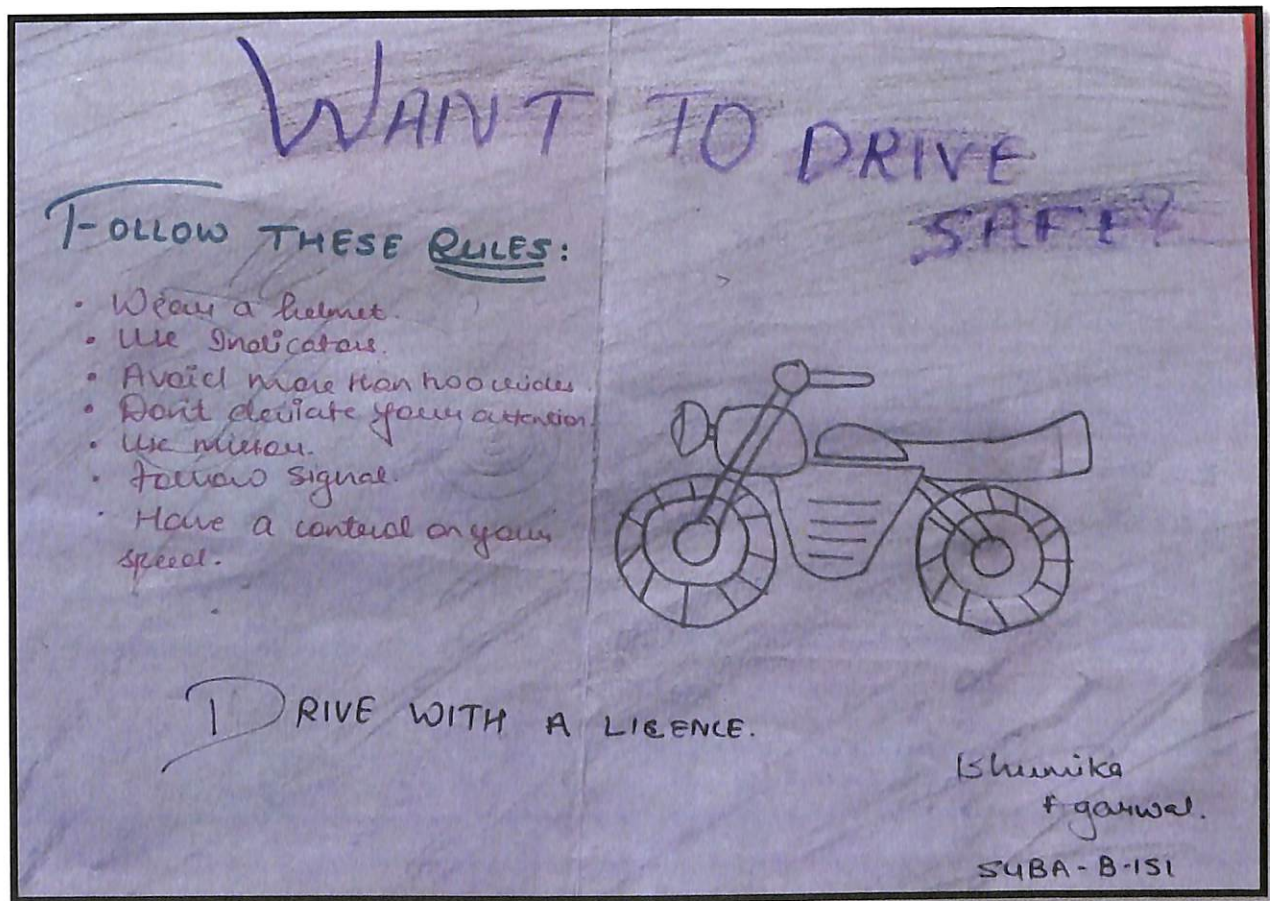 WANT TO DRIVE
SAFE?
FOLLOW THESE RULES:
• Wear a helmet.
• Use Indicators.
• Avoid more than two rides.
• Don't deviate your attention.
• Use mirror.
• Follow Signal.
• Have a control on your
speed.
DRIVE WITH A LICENCE.
Bhumika
Agarwal.
SYBA-B-151